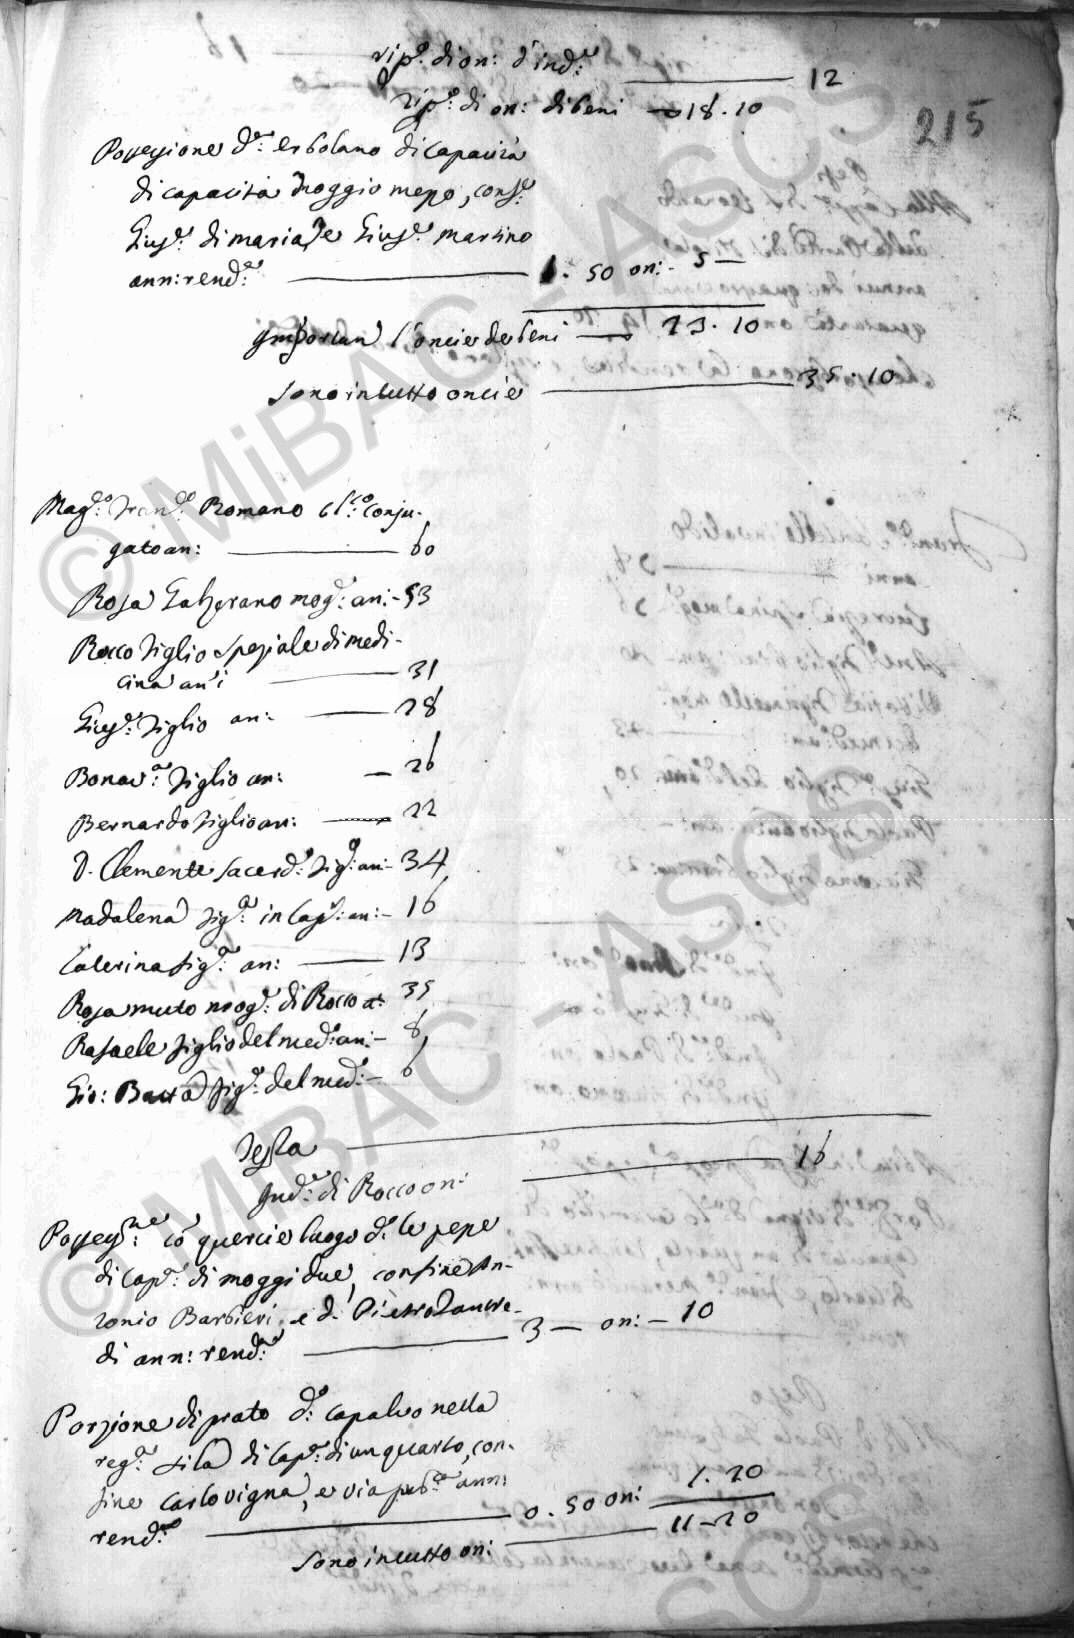 rip.o di on: d'ind.e 12
rip.o di on: di beni 18.10
215
Possessione d.o erbolano di capacità
di capacità moggio mezo, conf.e
Gius.e di maria, e Gius.e Martino
ann: rend.a 1. 50 on: 5
Importan l'oncie de beni 23. 10
sono in tutto oncie 35. 10
Mag.o Fran.o Romano conju-
gato an: 60
Rosa mog.e an: 53
Rocco figlio speziale di medi-
cina an'i 31
Gius.e figlio an: 28
Bonav.a figlio an: 26
Bernardo figlio an: 22
D. Clemente sacerd.e fig.o an: 34
Madalena fig.a in cap.e: an: 16
Caterina fig.a an: 13
Rosa muto mog.e di Rocco a: 35
Rafaele figlio del med.o an: 8
Gio: Batta fig.o del med.o 6
Testa
Ind.a di Rocco on: 16
Possess.ne cò quercie luogo d.o le pepe
di cap.à di moggi due, confine An-
tonio Barbieri, e d. Pietro
di ann: rend.a 3 — on: 10
Porzione di prato d.o capalvo nella
reg.a sila di cap.à di un quarto, con-
fine Carlo vigna, e via pub.ca ann:
rend.a 0. 50 on: 1. 20
sono in tutto on: 11-20
© MiBAC - ASCS
© MiBAC - ASCS
ASCS